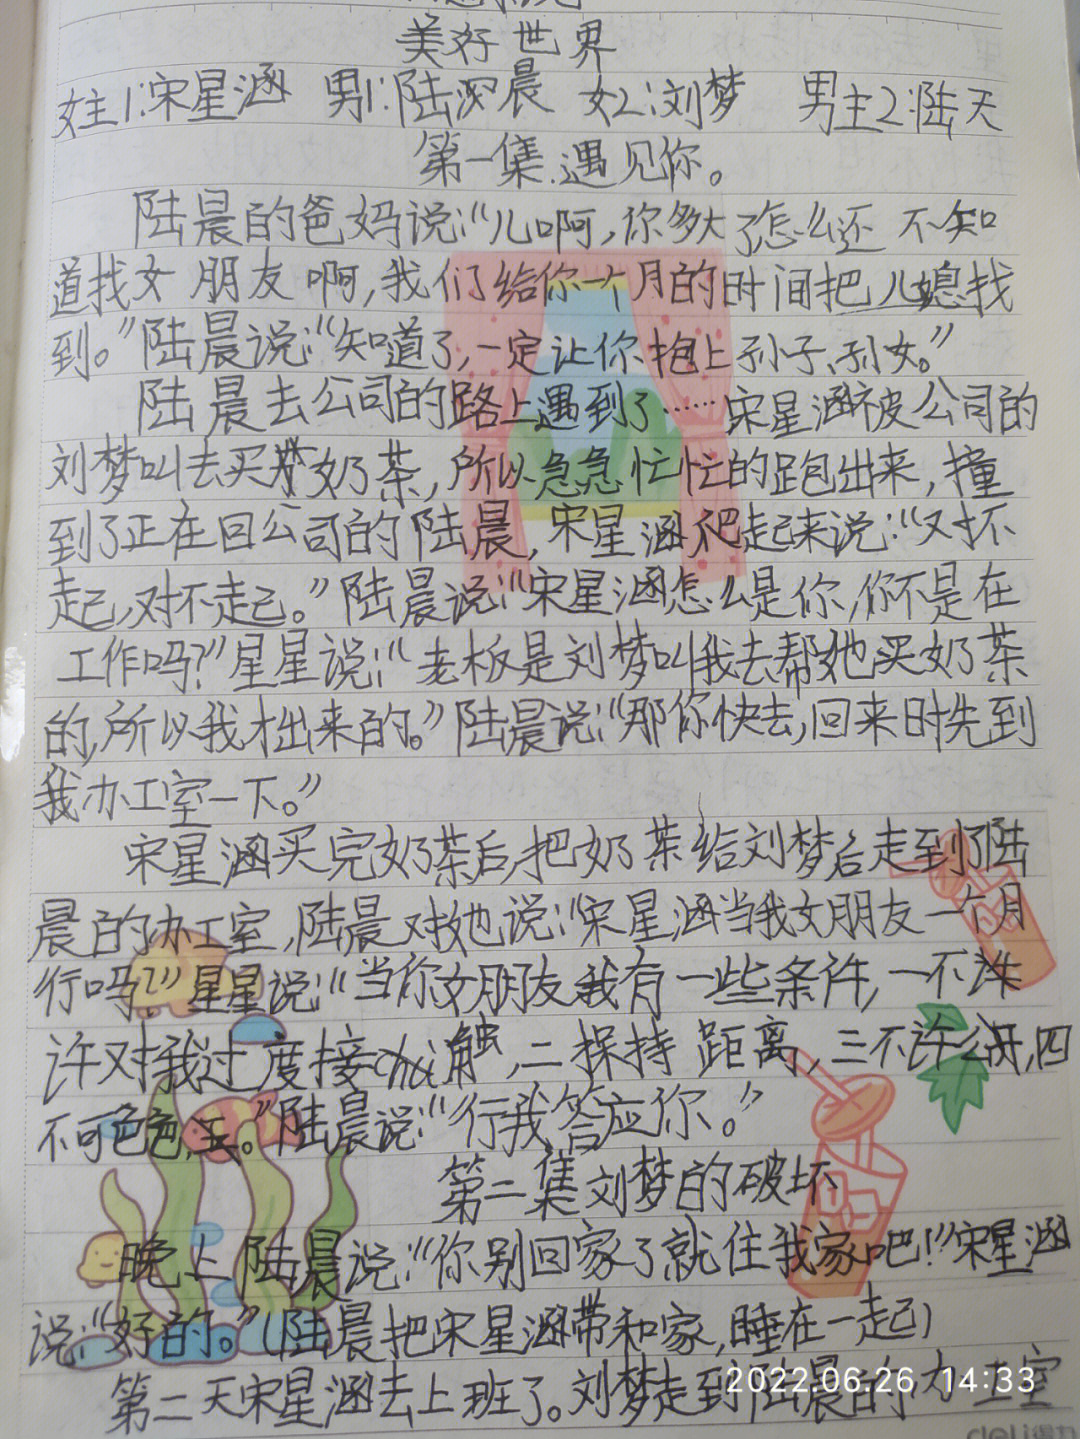 美好世界
女主1:宋星涵 男1:陆晨 女2:刘梦 男主2:陆天
第一集.遇见你。
陆晨的爸妈说:“儿啊,你多大了怎么还不知
道找女朋友啊,我们给你一个月的时间把儿媳找
到。”陆晨说:“知道了,一定让你抱上孙子、孙女。”
陆晨去公司的路上遇到了……宋星涵被公司的
刘梦叫去买奶茶,所以急急忙忙的跑出来,撞
到了正在回公司的陆晨,宋星涵爬起来说:“对不
起,对不起。”陆晨说:“宋星涵,怎么是你,你不是在
工作吗?”星星说:“老板是刘梦叫我去帮她买奶茶
的,所以我才出来的。”陆晨说:“那你快去,回来时先到
我办工室一下。”
宋星涵买完奶茶后,把奶茶给刘梦后走到了陆
晨的办工室,陆晨对她说:“宋星涵当我女朋友一个月
行吗?”星星说:“当你女朋友我有一些条件,一不许
许对我过度接chu触,二保持距离,三不许公开,四
不可色色,五。”陆晨说:“行我答应你。”
第二集刘梦的破坏
晚上陆晨说:“你别回家了就住我家吧!”宋星涵
说:“好的。”(陆晨把宋星涵带和家,睡在一起)
第二天宋星涵去上班了。刘梦走到陆晨的办工室
2022.06.26 14:33
deli得力